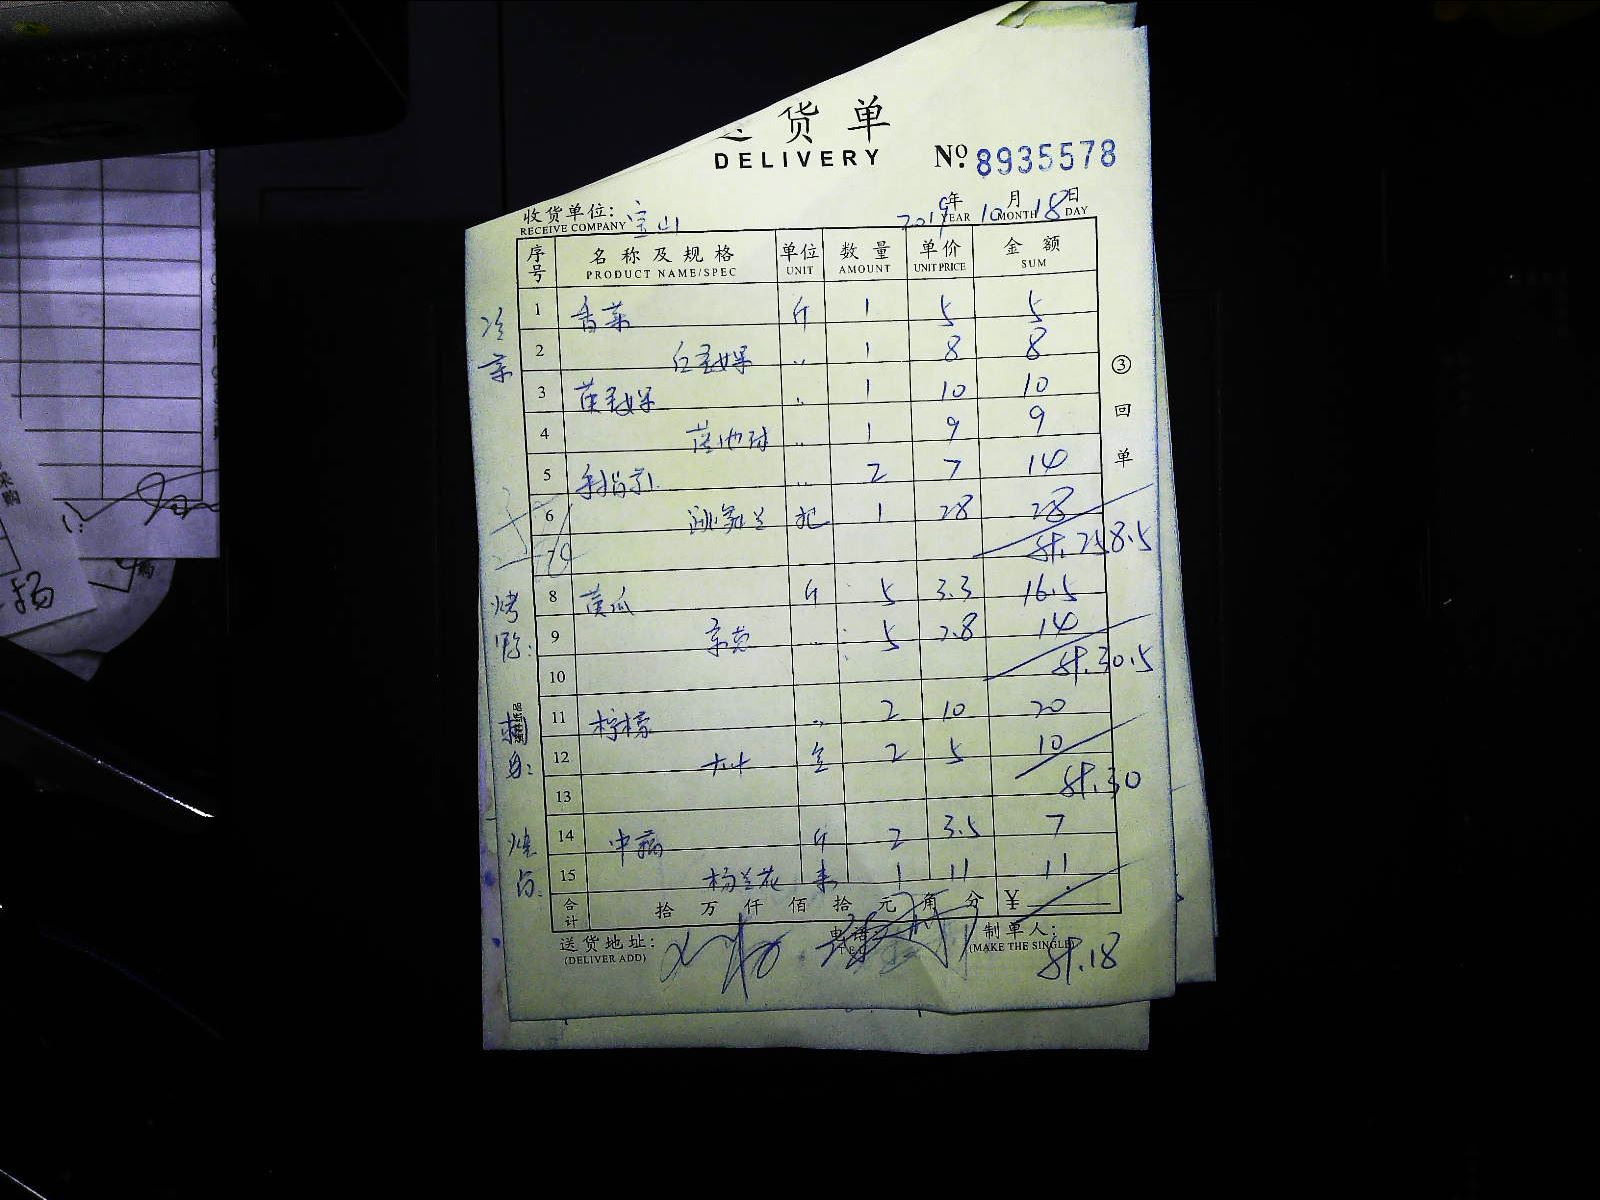 货单
DELIVERY
№ 8935578
收货单位： 宝山
RECEIVE COMPANY
2019 年 10 月 18 日
YEAR MONTH DAY
序号 名称及规格 单位 数量 单价 金额
PRODUCT NAME/SPEC UNIT AMOUNT UNIT PRICE SUM
冷菜
1 香菜 斤 1 5 5
2 〃 1 8 8
3 〃 1 10 10
4 〃 1 9 9
5 〃 2 7 14
6 把 1 28 28
7 计.258.5
烤鸭：
8 黄瓜 斤 5 3.3 16.5
9 京葱 〃 5 2.8 14
10 计.30.5
11 柠檬 〃 2 10 20
12 盒 2 5 10
13 计.30
烧
14 斤 2 3.5 7
15 杨兰花 束 1 11 11
合计 拾 万 仟 佰 拾 元 角 分 ¥
送货地址：
(DELIVER ADD)
电话：
制单人：
(MAKE THE SINGLE)
计.18
③回单